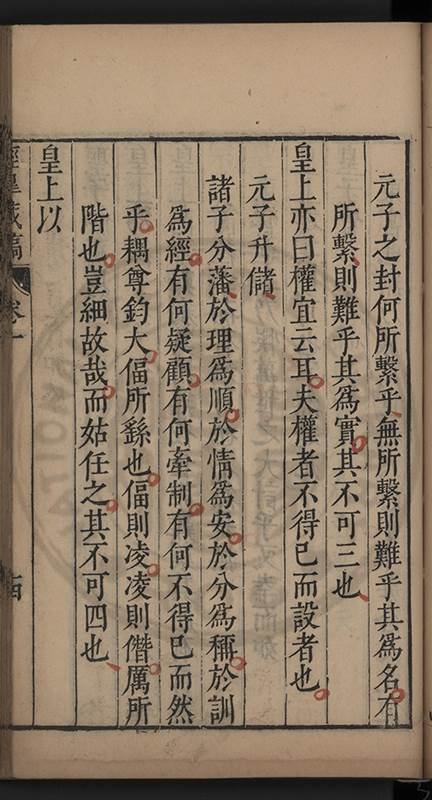 元子之封何所繫乎無所繫則難乎其為名有
所繫則難乎其為實其不可三也
皇上亦曰權宜云耳夫權者不得已而設者也
元子升儲
諸子分藩於理為順於情為安於分為稱於訓
為經有何疑顧有何牽制有何不得已而然
乎耦尊鈞大偪所繇也偪則凌凌則僭厲所
階也豈細故哉而姑任之其不可四也
皇上以
涇皋藏稿
卷一